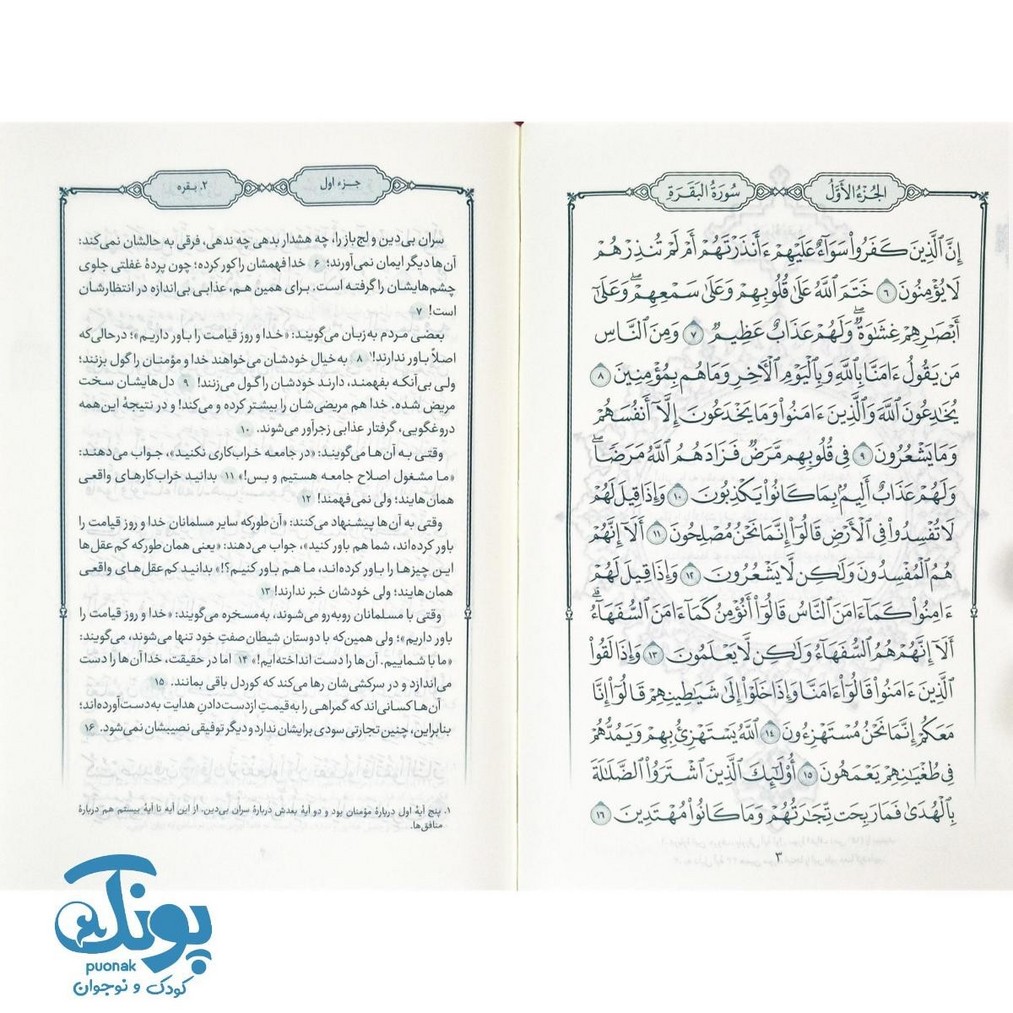 الجُزءُ الأَوَّلُ
سُورَةُ البَقَرَةِ
إِنَّ ٱلَّذِينَ كَفَرُوا۟ سَوَآءٌ عَلَيْهِمْ ءَأَنذَرْتَهُمْ أَمْ لَمْ تُنذِرْهُمْ
لَا يُؤْمِنُونَ ۶ خَتَمَ ٱللَّهُ عَلَىٰ قُلُوبِهِمْ وَعَلَىٰ سَمْعِهِمْ ۖ وَعَلَىٰٓ
أَبْصَٰرِهِمْ غِشَٰوَةٌ ۖ وَلَهُمْ عَذَابٌ عَظِيمٌ ۷ وَمِنَ ٱلنَّاسِ
مَن يَقُولُ ءَامَنَّا بِٱللَّهِ وَبِٱلْيَوْمِ ٱلْءَاخِرِ وَمَا هُم بِمُؤْمِنِينَ ۸
يُخَٰدِعُونَ ٱللَّهَ وَٱلَّذِينَ ءَامَنُوا۟ وَمَا يَخْدَعُونَ إِلَّآ أَنفُسَهُمْ
وَمَا يَشْعُرُونَ ۹ فِى قُلُوبِهِم مَّرَضٌ فَزَادَهُمُ ٱللَّهُ مَرَضًا ۖ
وَلَهُمْ عَذَابٌ أَلِيمٌۢ بِمَا كَانُوا۟ يَكْذِبُونَ ۱۰ وَإِذَا قِيلَ لَهُمْ
لَا تُفْسِدُوا۟ فِى ٱلْأَرْضِ قَالُوٓا۟ إِنَّمَا نَحْنُ مُصْلِحُونَ ۱۱ أَلَآ إِنَّهُمْ
هُمُ ٱلْمُفْسِدُونَ وَلَٰكِن لَّا يَشْعُرُونَ ۱۲ وَإِذَا قِيلَ لَهُمْ
ءَامِنُوا۟ كَمَآ ءَامَنَ ٱلنَّاسُ قَالُوٓا۟ أَنُؤْمِنُ كَمَآ ءَامَنَ ٱلسُّفَهَآءُ ۗ
أَلَآ إِنَّهُمْ هُمُ ٱلسُّفَهَآءُ وَلَٰكِن لَّا يَعْلَمُونَ ۱۳ وَإِذَا لَقُوا۟
ٱلَّذِينَ ءَامَنُوا۟ قَالُوٓا۟ ءَامَنَّا وَإِذَا خَلَوْا۟ إِلَىٰ شَيَٰطِينِهِمْ قَالُوٓا۟ إِنَّا
مَعَكُمْ إِنَّمَا نَحْنُ مُسْتَهْزِءُونَ ۱۴ ٱللَّهُ يَسْتَهْزِئُ بِهِمْ وَيَمُدُّهُمْ
فِى طُغْيَٰنِهِمْ يَعْمَهُونَ ۱۵ أُو۟لَٰٓئِكَ ٱلَّذِينَ ٱشْتَرَوُا۟ ٱلضَّلَٰلَةَ
بِٱلْهُدَىٰ فَمَا رَبِحَت تِّجَٰرَتُهُمْ وَمَا كَانُوا۟ مُهْتَدِينَ ۱۶
۳
جزء اول
۲. بقره
سران بی‌دین و لج‌باز را، چه هشدار بدهی چه ندهی، فرقی به حالشان نمی‌کند:
آن‌ها دیگر ایمان نمی‌آورند؛¹ ۶ خدا فهمشان را کور کرده؛ چون پردهٔ غفلتی جلوی
چشم‌هایشان را گرفته است. برای همین هم، عذابی بی‌اندازه در انتظارشان
است! ۷
بعضی مردم به زبان می‌گویند: «خدا و روز قیامت را باور داریم»؛ درحالی‌که
اصلاً باور ندارند! ۸ به خیال خودشان می‌خواهند خدا و مؤمنان را گول بزنند؛
ولی بی‌آنکه بفهمند، دارند خودشان را گول می‌زنند! ۹ دل‌هایشان سخت
مریض شده. خدا هم مریضی‌شان را بیشتر کرده و می‌کند! و در نتیجهٔ این‌همه
دروغگویی، گرفتار عذابی زجرآور می‌شوند. ۱۰
وقتی به آن‌ها می‌گویند: «در جامعه خراب‌کاری نکنید»، جواب می‌دهند:
«ما مشغول اصلاح جامعه هستیم و بس!» ۱۱ بدانید خراب‌کارهای واقعی
همان‌هایند؛ ولی نمی‌فهمند! ۱۲
وقتی به آن‌ها پیشنهاد می‌کنند: «آن‌طورکه سایر مسلمانان خدا و روز قیامت را
باور کرده‌اند، شما هم باور کنید»، جواب می‌دهند: «یعنی همان‌طورکه کم‌عقل‌ها
این چیزها را باور کرده‌اند، ما هم باور کنیم؟!» بدانید کم‌عقل‌های واقعی
همان‌هایند؛ ولی خودشان خبر ندارند! ۱۳
وقتی با مسلمانان روبه‌رو می‌شوند، به‌مسخره می‌گویند: «خدا و روز قیامت را
باور داریم»؛ ولی همین‌که با دوستان شیطان‌صفتِ خود تنها می‌شوند، می‌گویند:
«ما با شماییم. آن‌ها را دست انداخته‌ایم!» ۱۴ اما در حقیقت، خدا آن‌ها را دست
می‌اندازد و در سرکشی‌شان رها می‌کند که کوردل باقی بمانند. ۱۵
آن‌ها کسانی‌اند که گمراهی را به‌قیمتِ ازدست‌دادنِ هدایت به‌دست‌آورده‌اند؛
بنابراین، چنین تجارتی سودی برایشان ندارد و دیگر توفیقی نصیبشان نمی‌شود. ۱۶
۱. پنج آیهٔ اول دربارهٔ مؤمنان بود و دو آیهٔ بعدش دربارهٔ سران بی‌دین. از این آیه تا آیهٔ بیستم هم دربارهٔ
منافق‌ها.
پونک
puonak
کودک و نوجوان